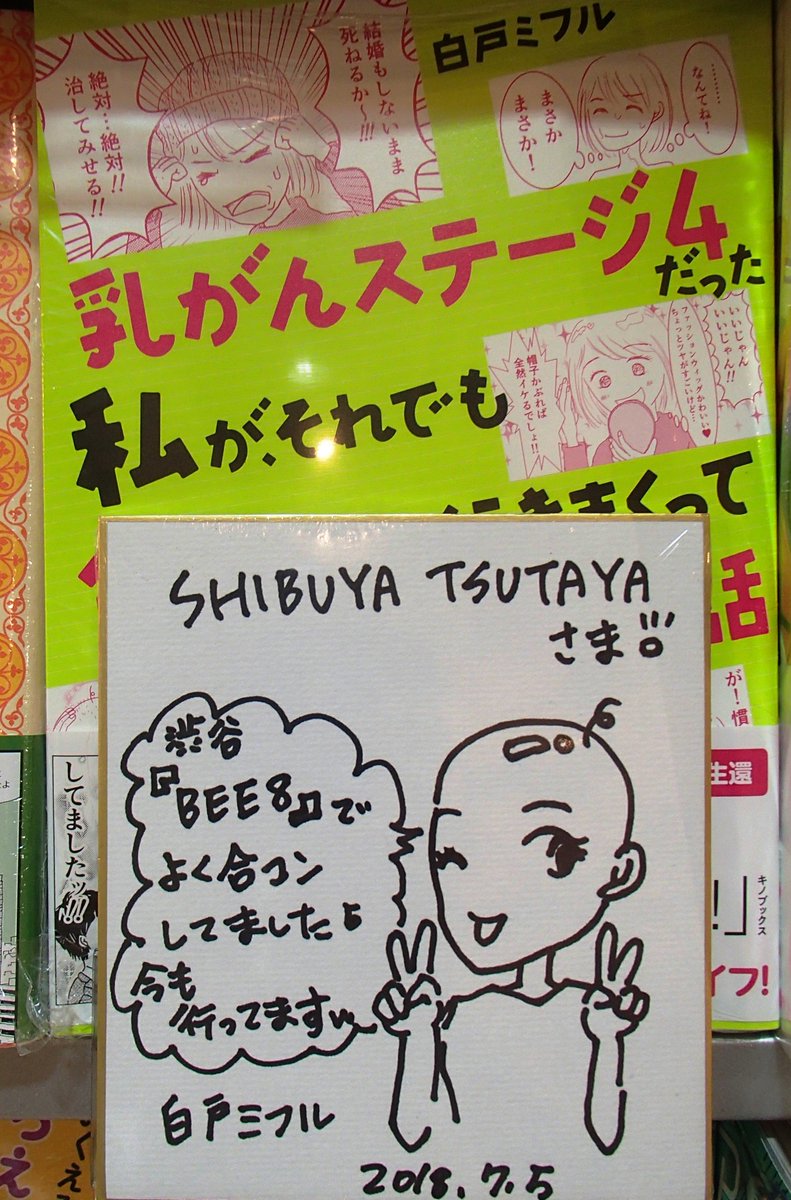 白戸ミフル
結婚もしないまま
死ねるか〜!!!
絶対…絶対!!
治してみせる!!
………
なんてね!
まさか
まさか!
乳がんステージ4
だった
いいじゃん
いいじゃん!!
ファッションウィッグかわいい♥
ちょっとツヤがすごいけど…
帽子かぶれば
全然イケるでしょ!!
私が、それでも
きまくって
話
が!慣
生還
してましたッ!!!
!」
キノブックス
イフ!
SHIBUYA TSUTAYA
さま!!!
渋谷
『BEE8』で
よく合コン
してました♪
今も
行ってます
白戸ミフル
2018.7.5